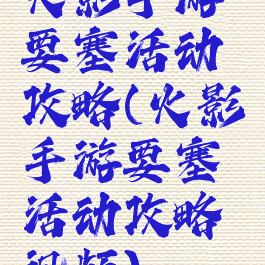 火影手游
要塞活动
攻略(火影
手游要塞
活动攻略
视频)